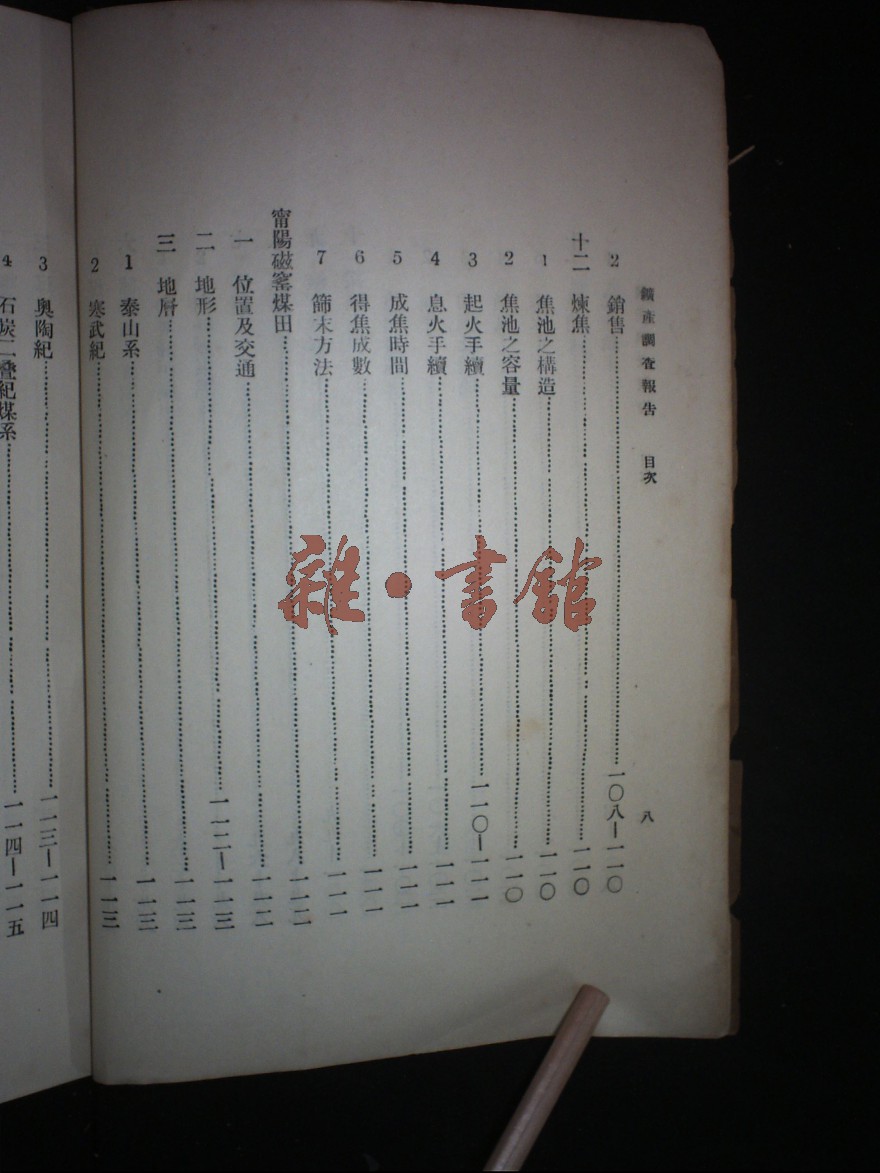 鑛產調查報告　目次　八
2　銷售……一〇八—一一〇
十二　煉焦……一一〇
1　焦池之構造……一一〇
2　焦池之容量……一一〇
3　起火手續……一一〇—一一一
4　息火手續……一一一
5　成焦時間……一一一
6　得焦成數……一一一
7　篩末方法……一一一
甯陽磁窰煤田……一一二
一　位置及交通……一一二
二　地形……一一二—一一三
三　地層……一一三
1　泰山系……一一三
2　寒武紀……一一三
3　奧陶紀……一一三—一一四
4　石炭二疊紀煤系……一一四—一一五
雜·書館